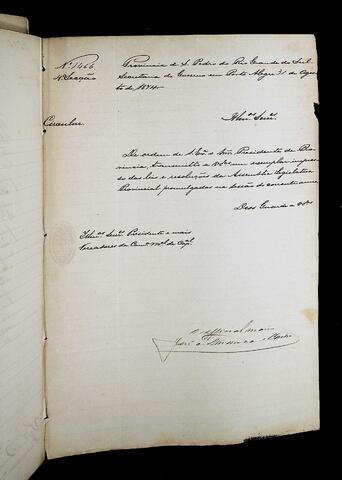 Nº 1466
4ª Secção
Provincia de S. Pedro do Rio Grande do Sul
Secretaria do Governo em Porto Alegre 31 de Agos
to de 1874
Circular
Illmos Senrs
De ordem de S. Exª o Snr. Presidente da Pro
vincia, transmitto a VSas um exemplar impres
so das leis e resoluções da Assembléa Legislativa
Provincial promulgadas na sessão do corrente anno.
Deos Guarde a VSas
Illmos Senrs Presidente e mais
Vereadores da Camª Mcal da Capl
O official maior
José